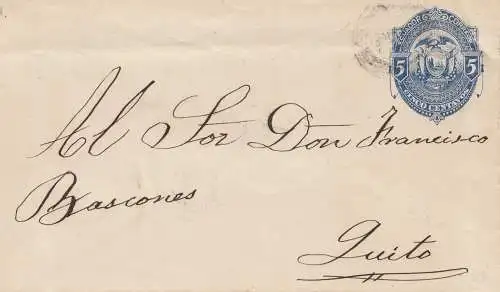 5 5
CINCO CENTAVOS
Al Sor Don Francisco
Bascones
Quito